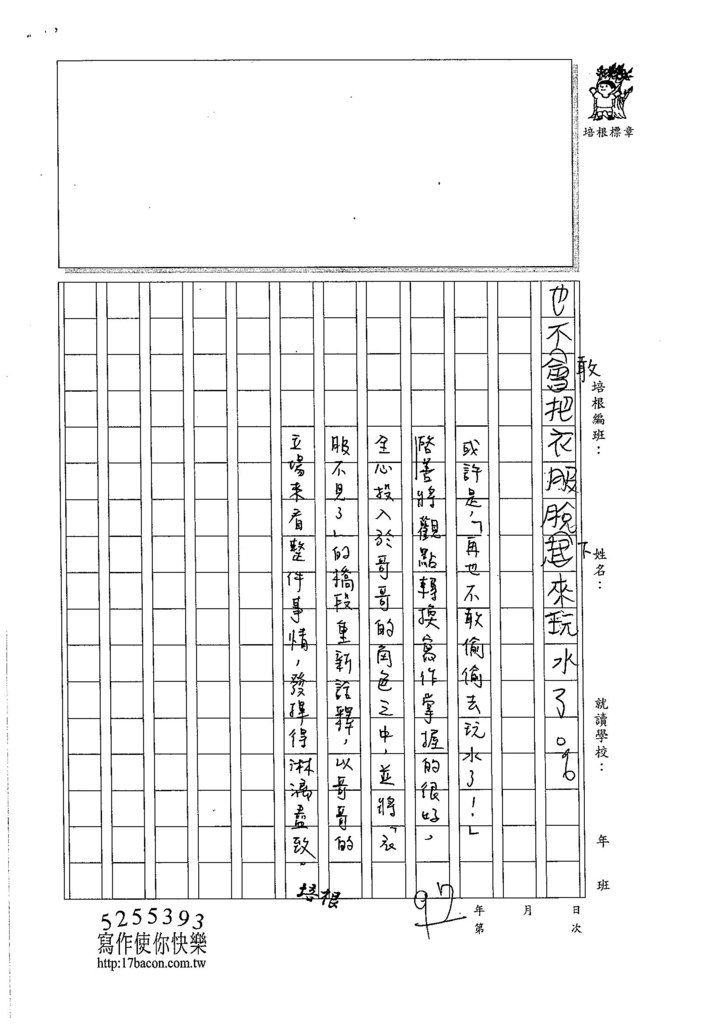 培根標章
培根編班：
姓名：
就讀學校：
年 班
也不會把衣服脫起來玩水了。
敢
下
或許是，「再也不敢偷偷去玩水了！」
啓善將觀點轉換寫作掌握的很好，
全心投入於哥哥的角色之中，並將「衣
服不見了」的橋段重新詮釋，以哥哥的
立場來看整件事情，發揮得淋漓盡致。
培根
97
年 月 日
第 次
5255393
寫作使你快樂
http:17bacon.com.tw